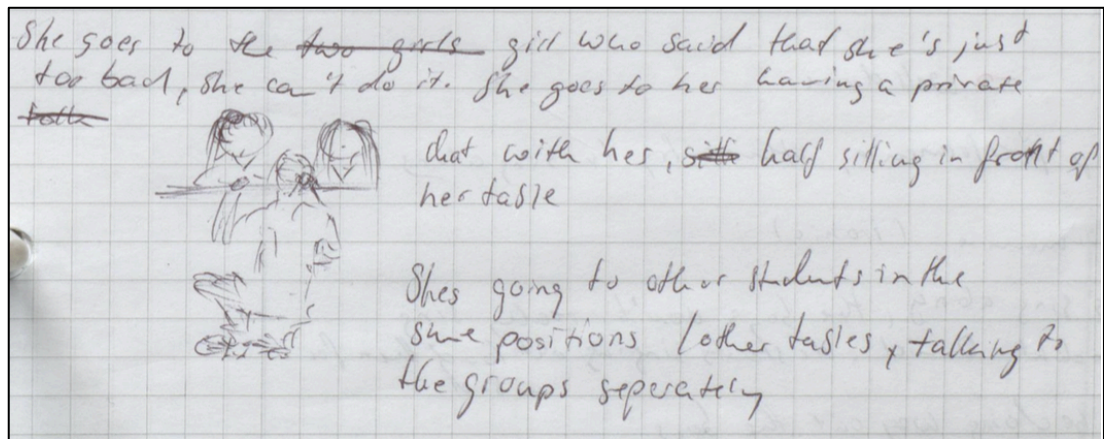 She goes to the two girls girl who said that she's just
too bad, she can't do it. She goes to her having a private
talk
chat with her, sitt half sitting in front of
her table
Shes going to other students in the
same positions / other tables, talking to
the groups seperately